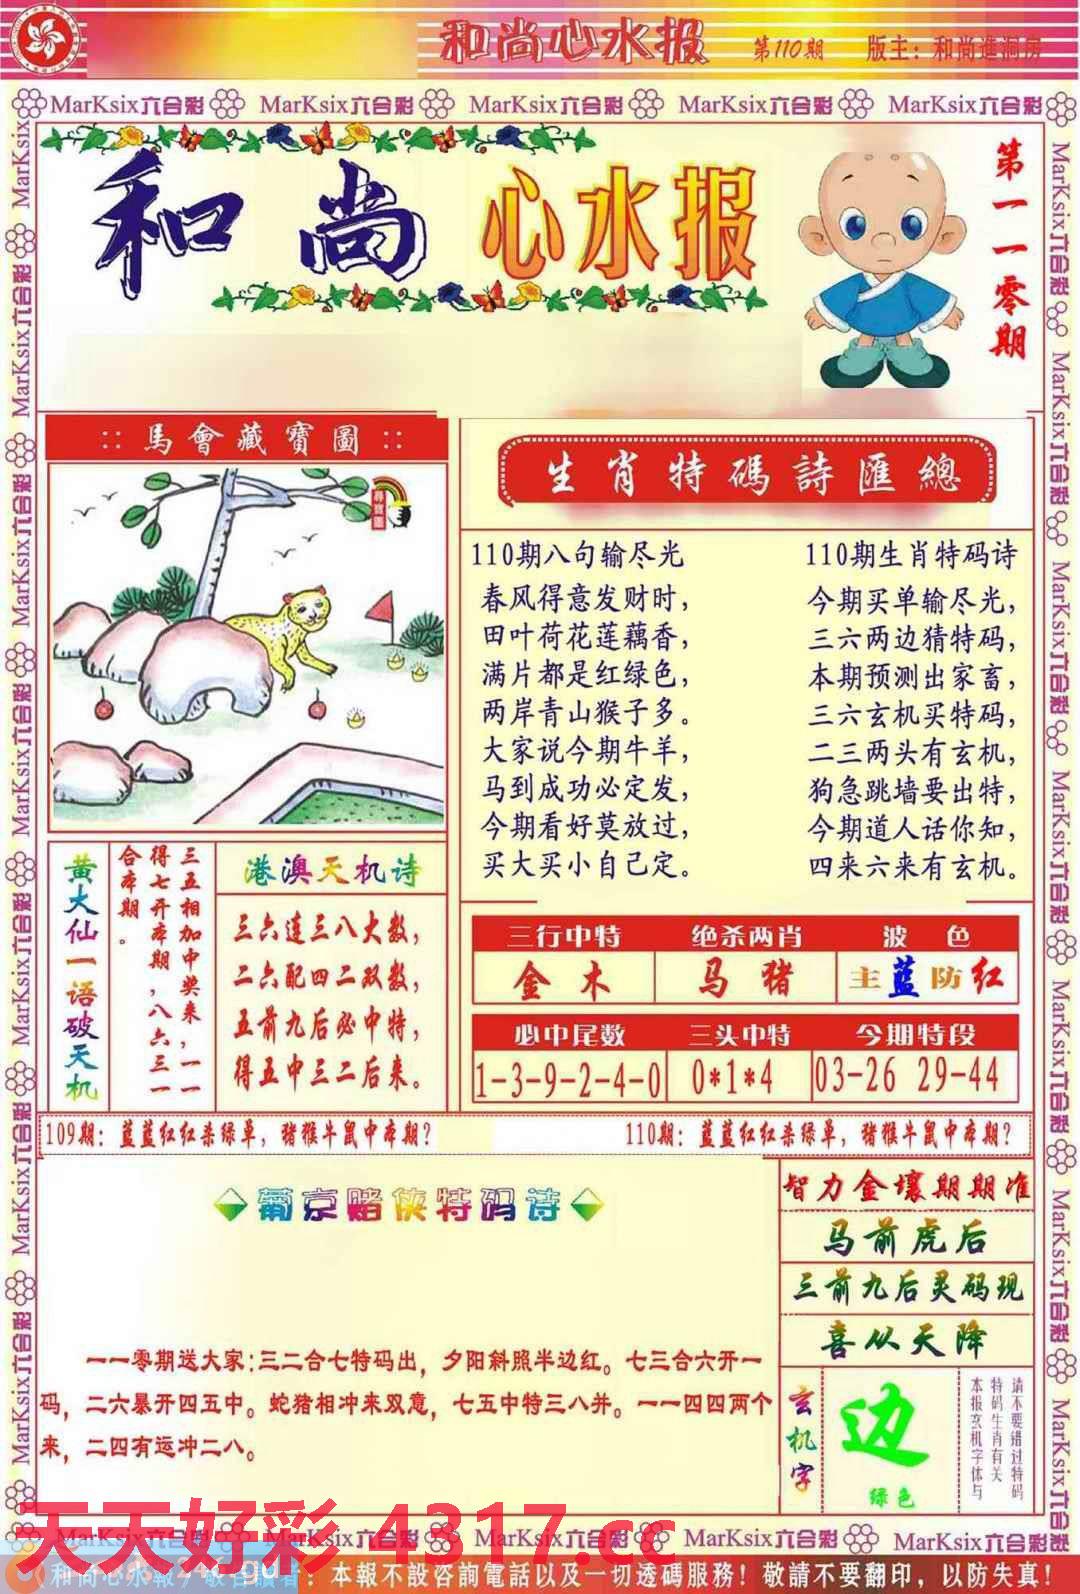 和尚心水报 第110期 版主：和尚進洞房
MarKsix六合彩 MarKsix六合彩 MarKsix六合彩 MarKsix六合彩 MarKsix六合彩
和尚 心水报
第一一零期
:: 馬會藏寶圖 ::
尋寶圖
生肖特碼詩匯總
110期八句输尽光
春风得意发财时，
田叶荷花莲藕香，
满片都是红绿色，
两岸青山猴子多。
大家说今期牛羊，
马到成功必定发，
今期看好莫放过，
买大买小自己定。
110期生肖特码诗
今期买单输尽光，
三六两边猜特码，
本期预测出家畜，
三六玄机买特码，
二三两头有玄机，
狗急跳墙要出特，
今期道人话你知，
四来六来有玄机。
黄大仙一语破天机
三五相加中奖来，一一
得七开本期，八六三一
合本期。
港澳天机诗
三六连三八大数，
二六配四二双数，
五前九后必中特，
得五中三二后来。
三行中特 绝杀两肖 波色
金木 马猪 主蓝防红
必中尾数 三头中特 今期特段
1-3-9-2-4-0 0*1*4 03-26 29-44
109期：蓝蓝红红杀绿单，猪猴牛鼠中本期？
110期：蓝蓝红红杀绿单，猪猴牛鼠中本期？
葡京赌侠特码诗
一一零期送大家：三二合七特码出，夕阳斜照半边红。七三合六开一
码，二六暴开四五中。蛇猪相冲来双意，七五中特三八并。一一四四两个
来，二四有运冲二八。
智力金壤期期准
马前虎后
三前九后灵码现
喜从天降
玄机字
边
绿色
请不要错过特码
特码生肖有关
本报玄机字体与
天天好彩 4317.cc
MarKsix六合彩 MarKsix六合彩 MarKsix六合彩 MarKsix六合彩 MarKsix六合彩
和尚心水報 敬告讀者：本報不設咨詢電話以及一切透碼服務！敬請不要翻印，以防失真！